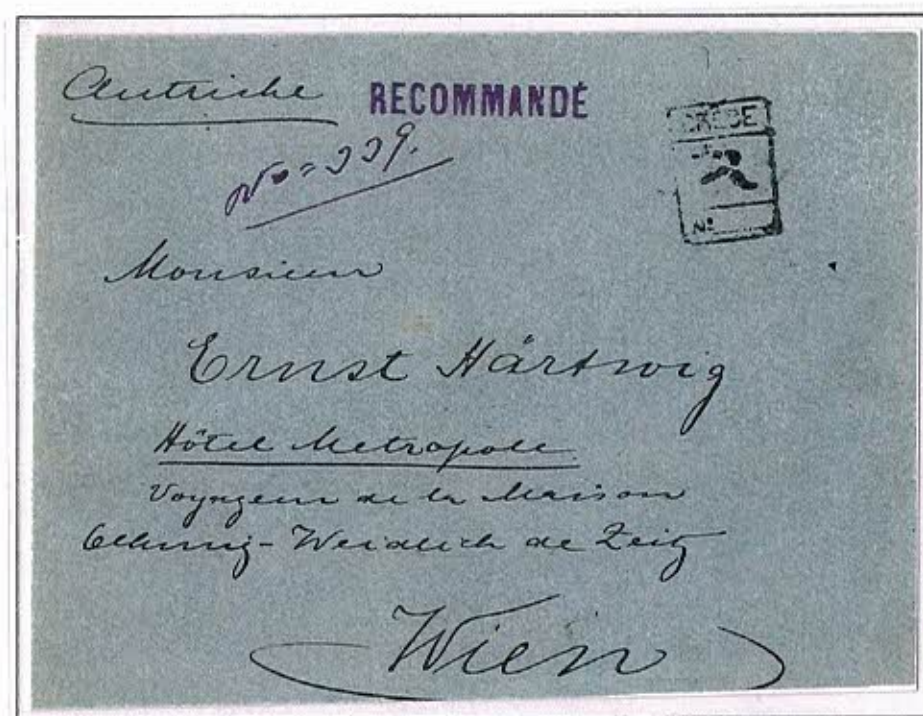 Autriche RECOMMANDÉ
No = 339.
GRÈCE
R
No
Monsieur
Ernst Härtwig
Hôtel Metropole
Voyageur de la Maison
Oehmig-Weidlich de Zeitz
Wien